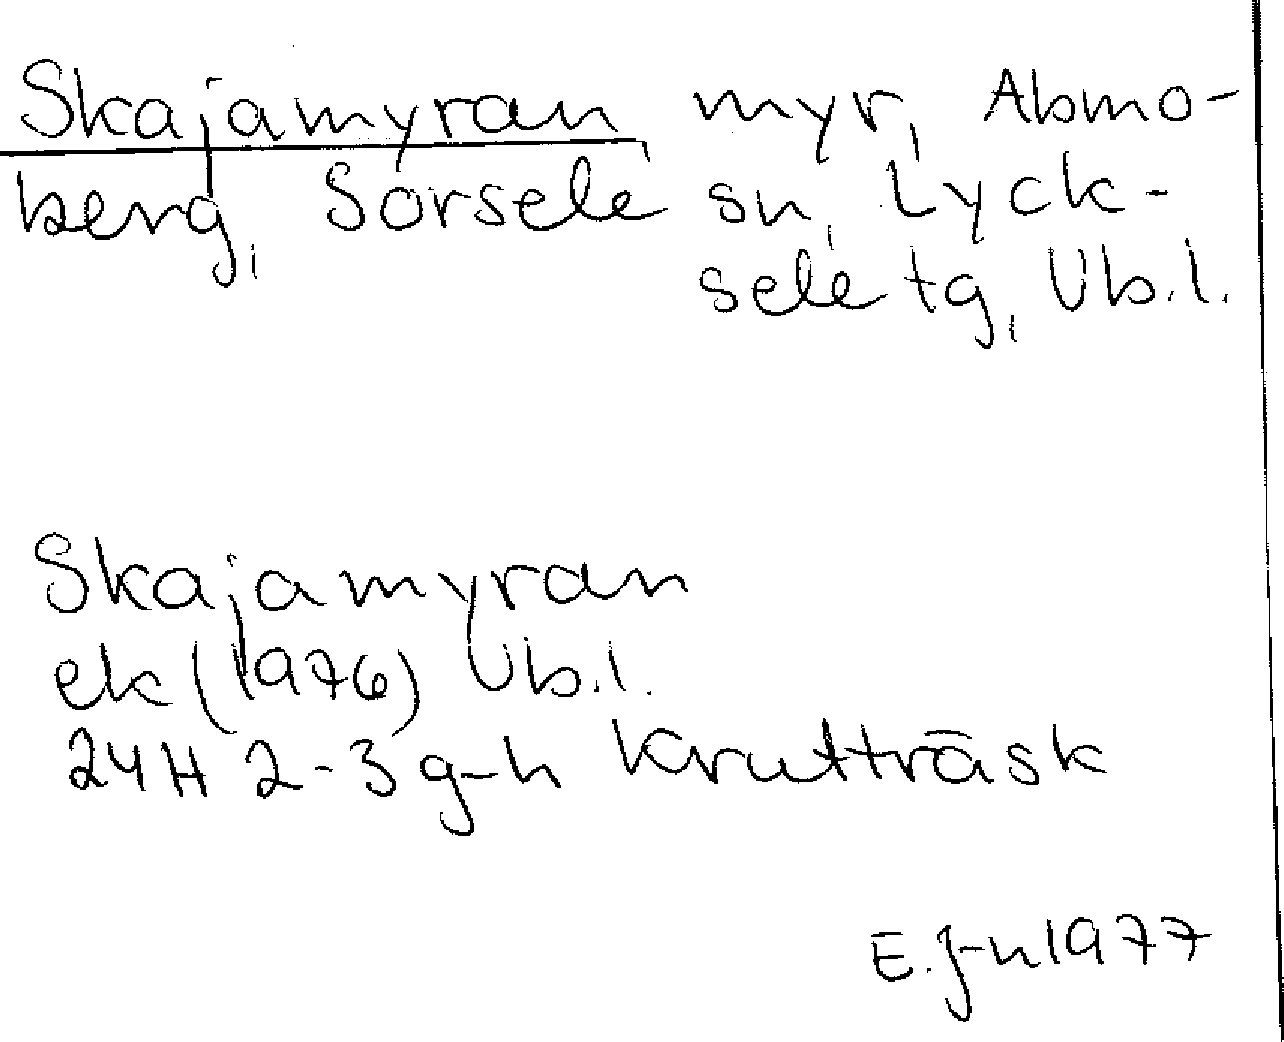 Skajamyran, myr, Abmo-
berg, Sorsele sn, Lyck-
sele tg, Vb.l.
Skajamyran
ek (1976) Vb.l.
24H 2-3 g-h Krutträsk
E. J-n 1977